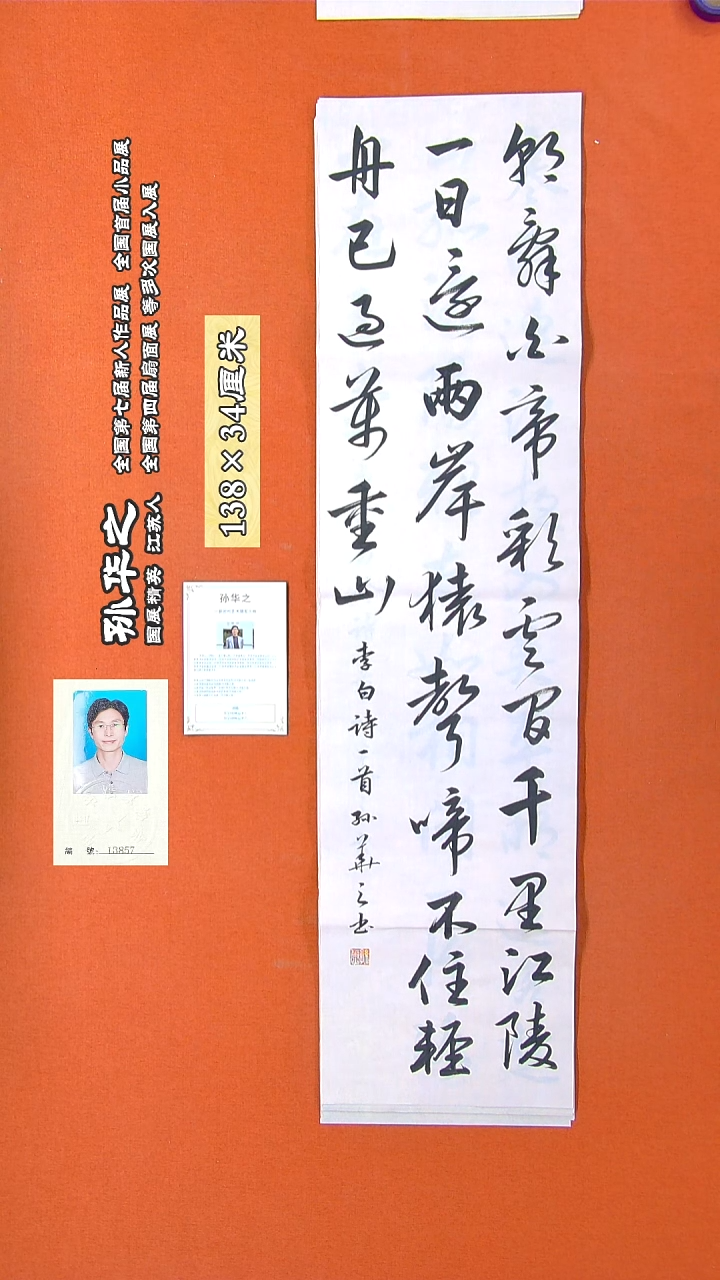 朝辭白帝彩雲间千里江陵
一日還兩岸猿聲啼不住輕
舟已過萬重山
李白诗一首孙華之书
138×34厘米
孙华之
国展精英 江苏人
全国第七届新人作品展 全国首届小品展
全国第四届扇面展 等多次国展入展
孙华之
编 號: 13857